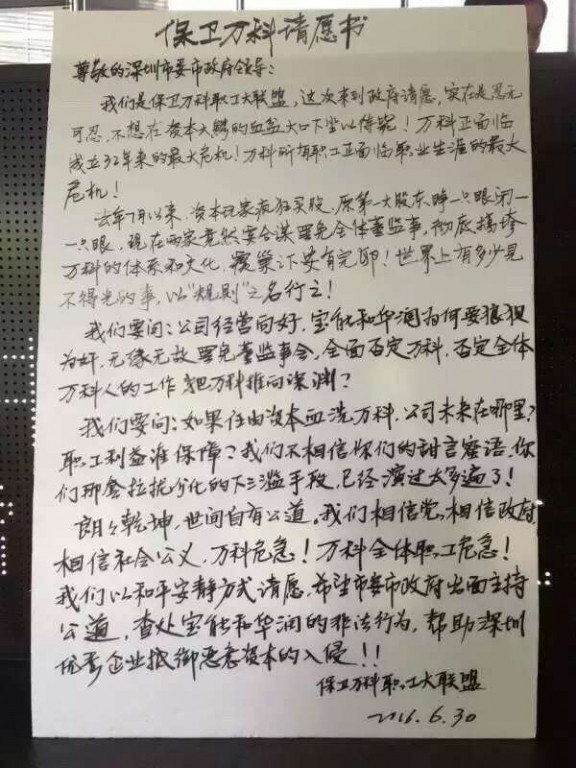 保卫万科请愿书
尊敬的深圳市委市政府领导：
我们是保卫万科职工大联盟，这次来到政府请愿，实在是忍无
可忍，不想在资本大鳄的血盆大口下坐以待毙！万科正面临
成立32年来的最大危机！万科所有职工正面临职业生涯的最大
危机！
去年7月以来，资本玩家疯狂买股，原第一大股东睁一只眼闭
一只眼，现在两家竟然要合谋罢免全体董监事，彻底搞垮
万科的体系和文化，覆巢下安有完卵！世界上有多少见
不得光的事，以“规则”之名行之！
我们要问：公司经营向好，宝能和华润为何要狼狈
为奸，无缘无故罢免董监事会，全面否定万科，否定全体
万科人的工作，把万科推向深渊？
我们要问：如果任由资本血洗万科，公司未来在哪里？
职工利益谁保障？我们不相信你们的甜言蜜语，你
们那套拉拢分化的下三滥手段，已经演过太多遍了！
朗々乾坤，世间自有公道。我们相信党，相信政府，
相信社会公义，万科危急！万科全体职工危急！
我们以和平安静方式请愿，希望市委市政府出面主持
公道，查处宝能和华润的非法行为，帮助深圳
优秀企业抵御恶意资本的入侵！！
保卫万科职工大联盟
2016.6.30